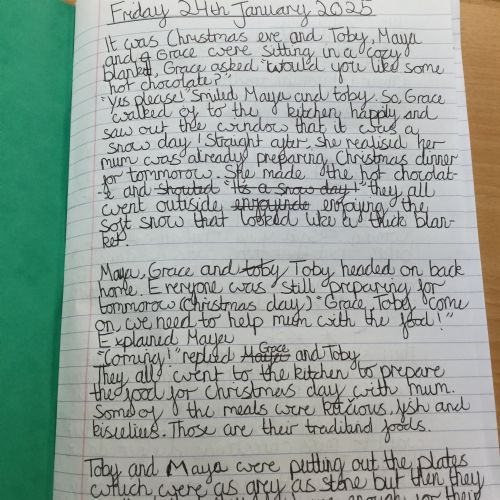 Friday 24th January 2025
It was Christmas eve, and Toby, Maya
and Grace were sitting in a cozy
blanket, Grace asked "would you like some
hot chocolate?"
"Yes please!" Smiled Maya and toby. So, Grace
walked of to the kitchen happly and
saw out the window that it was a
snow day! Straight after, she realised her
mum was already preparing Christmas dinner
for tommorow. She made the hot chocolat-
e and shouted "Its a snow day!" they all
went outiside enjoying the
soft snow that looked like a thick blan-
ket.
Maya, Grace and toby Toby headed on back
home. Everyone was still preparing for
tommorow (christmas day) "Grace, Toby, come
on, we need to help mum with the food!"
Explained Maya
"Coming!" replied Maya Grace and Toby
They all went to the kitchen to prepare
the food for Christmas day with mum.
Some of the meals were fish and
Those are their foods.
Toby and Maya were putting out the plates
which were as grey as stone but then they
enough for their